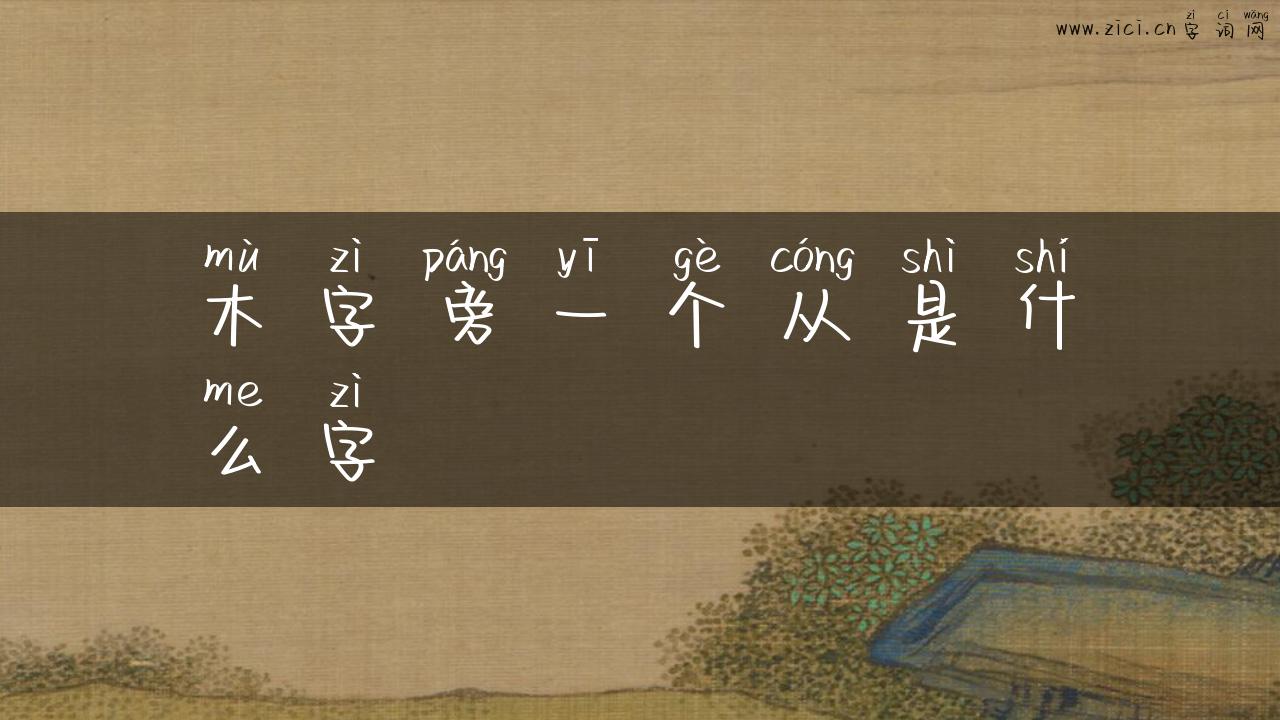 zì cí wǎng
www.zici.cn 字 词 网
mù zì páng yī gè cóng shì shí
木 字 旁 一 个 从 是 什
me zì
么 字